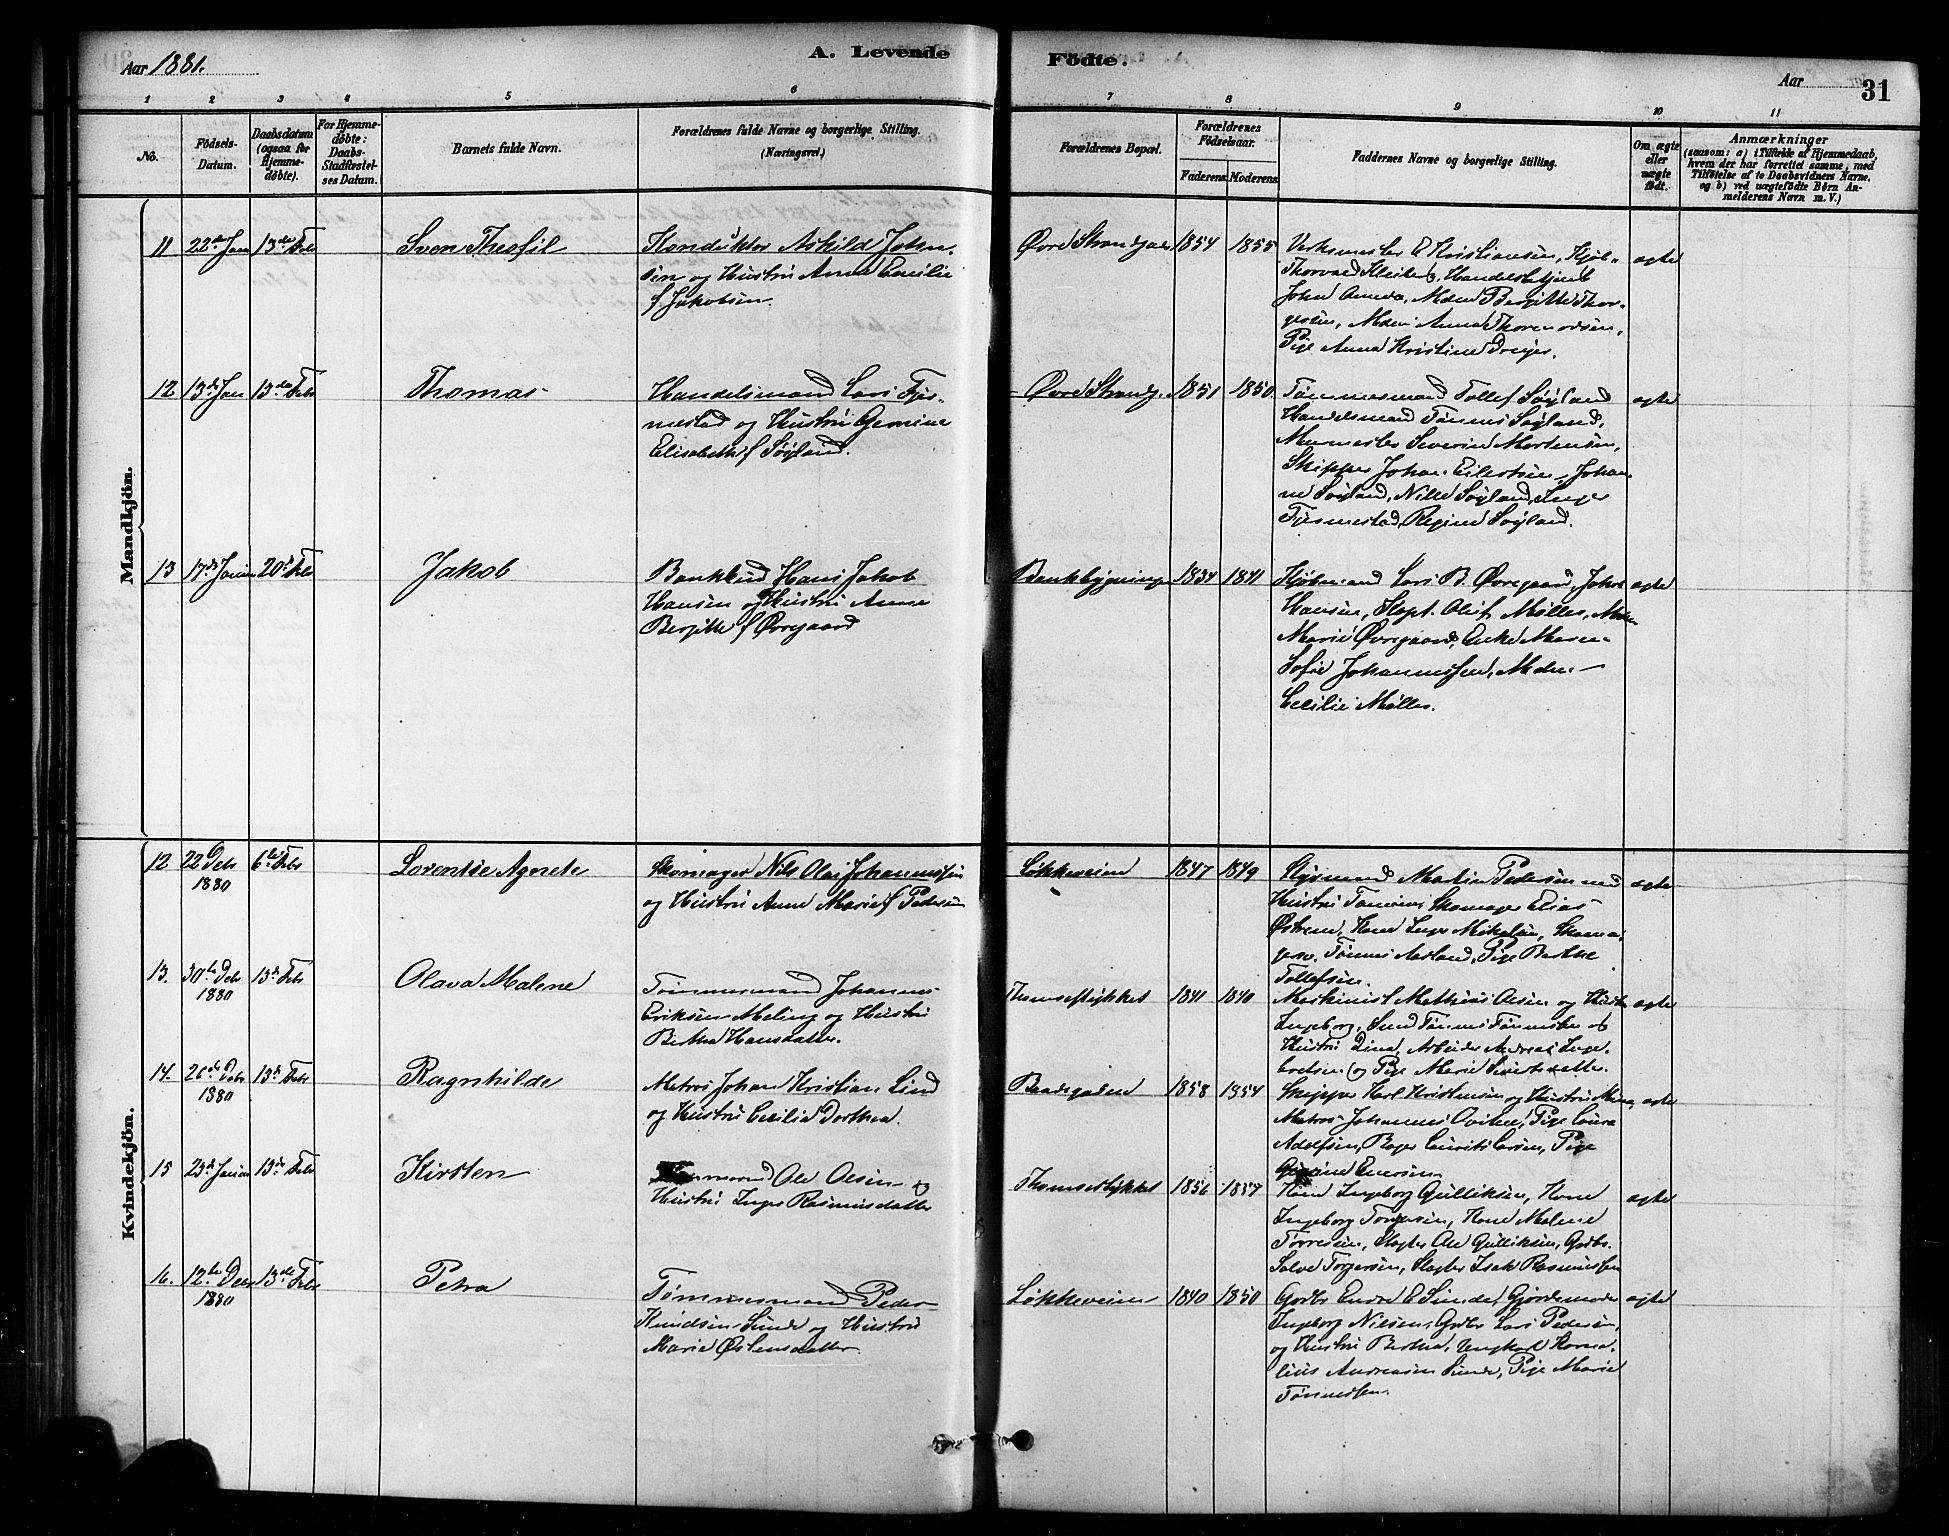 Aar 1881.
A. Levende
Födte.
Aar
31
1 2 3 4 5 6 7 8 9 10 11
No.
Födsels-Datum.
Daabsdatum (ogsaa for Hjemme-döbte).
For Hjemme-döbte: Daabs-Stadfæstel-ses Datum.
Barnets fulde Navn.
Forældrenes fulde Navne og borgerlige Stilling.
(Næringsvei.)
Forældrenes Bopæl.
Forældrenes Födselsaar.
Faderens. Moderens.
Faddernes Navne og borgerlige Stilling.
Om ægte eller uægte födt.
Anmærkninger
(saasom: a) i Tilfælde af Hjemmedaab, hvem der har forrettet samme, med Tilföielse af to Daabsvidners Navne, og b) ved uægtefödte Börn An-melderens Navn m. V.)
Mandkjön.
11 22de Jan 13de Febr Sven Theofil
Konduktør Askild John-
sen og Hustru Anna Emilie
f Jakobsen.
Øvre Strandgade 1854 1855
Verksmester E Kristiansen, Kjøb-
Thorvald Kleiberg, Handelsbetjent
John Anda, Mdm Bergitte Thor-
gesen, Mdm Anna Thormodsen,
Pige Anna Kristine Dreyer.
ægte
12 13de Jan 13de Febr Thomas
Handelsmand Lars Tjes-
mestad og Hustru Gemine
Elisabeth f Søyland.
Øvre Strandg. 1851 1850
Tømmermand Tollef Søyland
Handelsmand Tønnes Søyland,
Murmester Severin Mortensen,
Skipper Johan Eilertsen, Johan-
ne Søyland, Nille Søyland, Inger
Tjesmestad, Regine Søyland.
ægte
13 17de Januar 20de Feb Jakob
Bankbud Hans Jakob
Hansen og Hustru Anne
Bergitte f Øvregaard
Bankbygningen 1834 1841
Kjøbmand Lars B. Øvregaard, Johs
Hansen, Kapt. Oluf Møller, Mdm
Marie Øvregaard, Enke Maren
Sofie Johannessen, Mdm
Cecilie Møller.
ægte
Kvindekjön.
12 22 Debr 6te Febr Lorentse Agnete
1880
Skomager Nils Olai Johannessen
og Hustru Anne Marie f Pedersen
Løkkeveien 1847 1849
Styrmand Martin Pedersen med
Hustru Tomine Skomager Elias
Østrem, Kone Inger Mikalsen, Skoma-
ger Tønnes Aasland, Pige Berthe
Tollefsen.
ægte
13. 30te Debr 13de Febr Olava Malene
1880
Tømmermand Johannes
Eriksen Meling og Hustru
Bertha Hansdatter.
Thomsestykket 1841 1840
Maskinist Mathias Olsen og Hustru
Ingeborg, Smed Tønnes Tønnesen og
Hustru Dina, Arbeider Andreas Inge-
bretsen og Pige Marie Sivertsdatter.
ægte
14. 26de Debr 13de Febr Ragnhilde
1880
Matros Johan Kristian Lind
og Hustru Cecilia Dorthea.
Baadsgaden 1858 1854
Skipper Karl Kristensen og Hustru Mina,
Matros Johannes Oviken, Pige Laura
Adolfsen, Bager Laurits Larsen, Pige
Enersen
ægte
15 23de Januar 13de Febr Kirsten
Ole Olsen og
Hustru Inger Rasmusdatter
Thomsestykket 1856 1854
Kone Ingeborg Gulliksen, Kone
Ingeborg Torgersen, Kone Malene
Torresen, Slagter Ole Gulliksen, Gdbr.
Salve Torgersen, Slagter Isak Rasmussen
ægte
16. 12te Debr 13de Febr Petra
1880
Tømmermand Peder
Knudsen Sunde og Hustru
Marie Østensdatter
Løkkeveien 1840 1850
Gdbr Endre E Sunde, Gjordemoder
Ingeborg Nilsen, Gdbr Lars Pedersen,
og Hustru Bertha, Ungkarl Korne-
lius Andreasen Sunde, Pige Marie
Tønnessen.
ægte